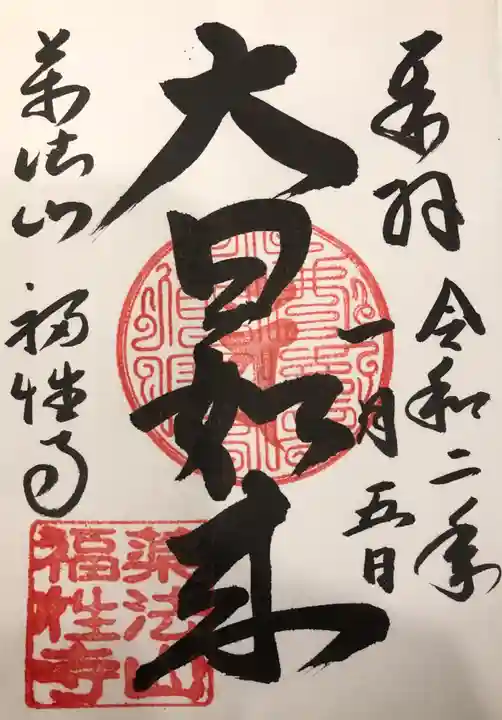 奉拝
令和二年
一月五日
大日如来
薬法山
福性寺
薬法山
福性寺